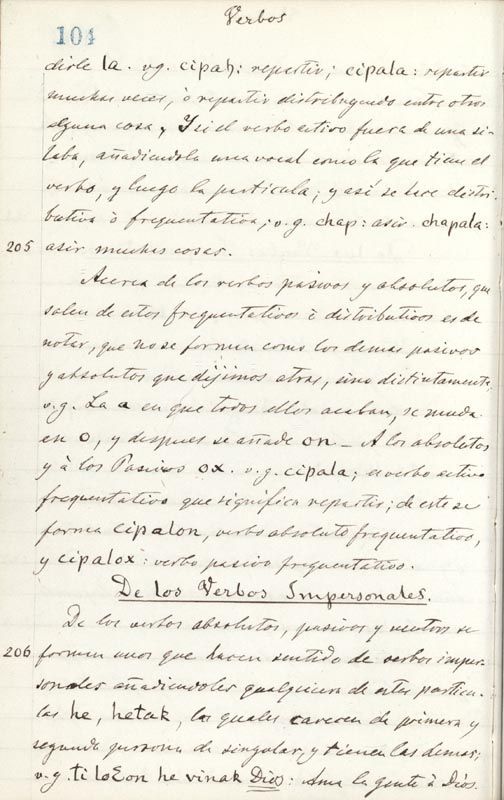 Verbos
104
dirle la. vg. cipah: repartir; cipala: repartir
muchas veces, ò repartir distribuyendo entre otros
alguna cosa, Y si el verbo activo fuera de una si-
laba, añadiendola una vocal como la que tiene el
verbo, y luego la particula; y asi se hace distri-
butiva ò frequentativa; v.g. chap: asir. chapala:
205 asir muchas cosas.
Acerca de los verbos pasivos y absolutos, que
salen de estos frequentativos è distributivos es de
notar, que no se forman como los demas pasivos
y absolutos que dijimos atras, sino distintamente
v.g. La a en que todos ellos acaban, se muda
en o, y despues se añade on - A los absolutos
y à los Pasivos ox. v.g. cipala; el verbo activo
frequentativo que significa repartir; de este se
forma cipalon, verbo absoluto frequentativo,
y cipalox: verbo pasivo frequentativo.
De los Verbos Impersonales.
De los verbos absolutos, pasivos y neutros se
206 forman unos que hacen sentido de verbos imper-
sonales añadiendoles qualquiera de estas particu-
las he, hetak, las quales carecen de primera y
segunda persona de singular, y tienen las demas;
v.g. ti loƐon he vinak Dios: Ama la gente à Dios.